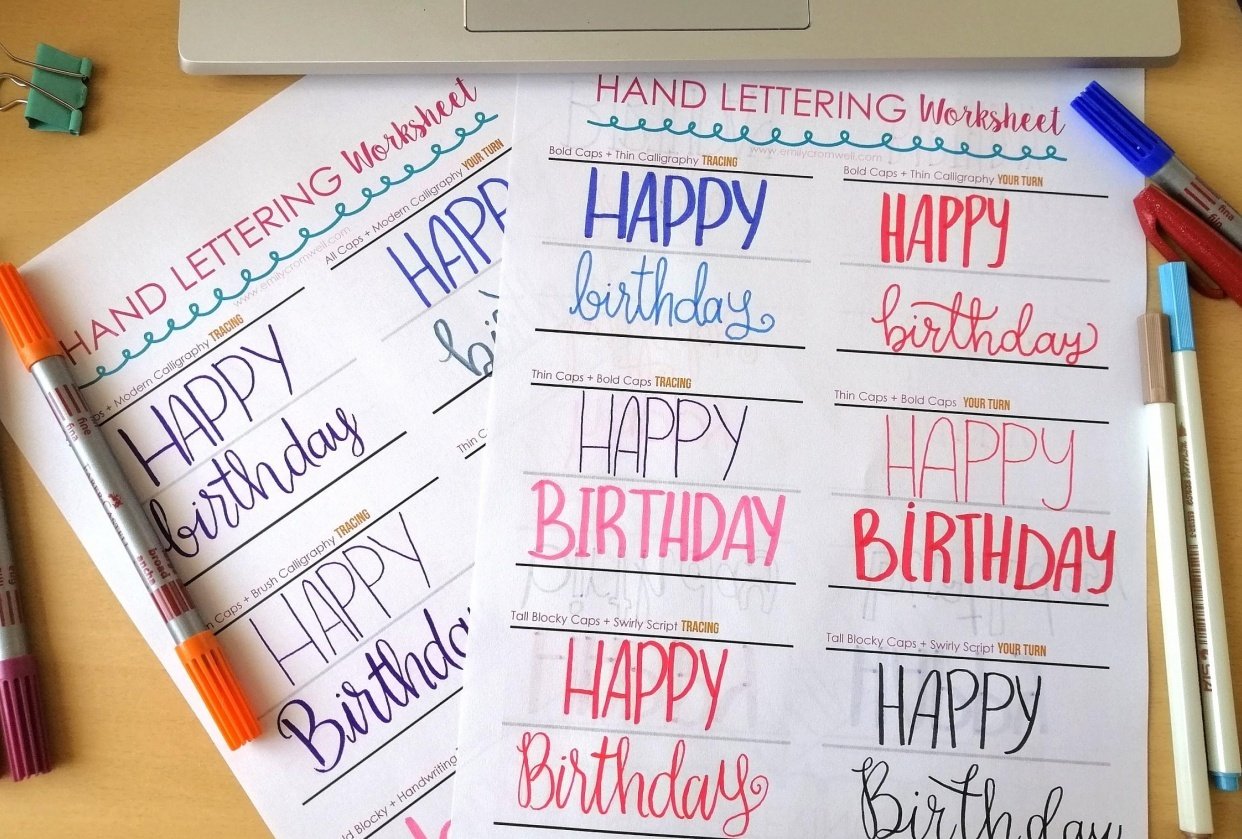 HAND LETTERING Worksheet
www.emilycromwell.com
All Caps + Modern Calligraphy YOUR TURN
HAPP
bi
Caps + Modern Calligraphy TRACING
HAPPY
birthday
Thin C
Caps + Brush Calligraphy TRACING
HAPPY
Birthda
Blocky + Handwriting
HAND LETTERING Worksheet
www.emilycromwell.com
Bold Caps + Thin Calligraphy TRACING
HAPPY
birthday
Bold Caps + Thin Calligraphy YOUR TURN
HAPPY
birthday
Thin Caps + Bold Caps TRACING
HAPPY
BIRTHDAY
Thin Caps + Bold Caps YOUR TURN
HAPPY
BiRTHDAY
Tall Blocky Caps + Swirly Script TRACING
HAPPY
Birthday
Tall Blocky Caps + Swirly Script YOUR TURN
HAPPY
Birthday
fine
fina
FABER-CASTELL
broad
ancha
fine
fina